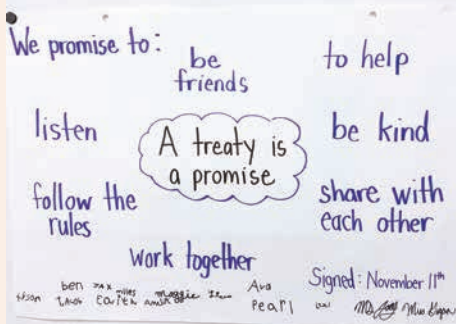 We promise to:
be
friends
to help
listen
A treaty is
a promise
be kind
follow the
rules
share with
each other
work together
Signed: November 11th
ben max miles maggie Ava
Pearl